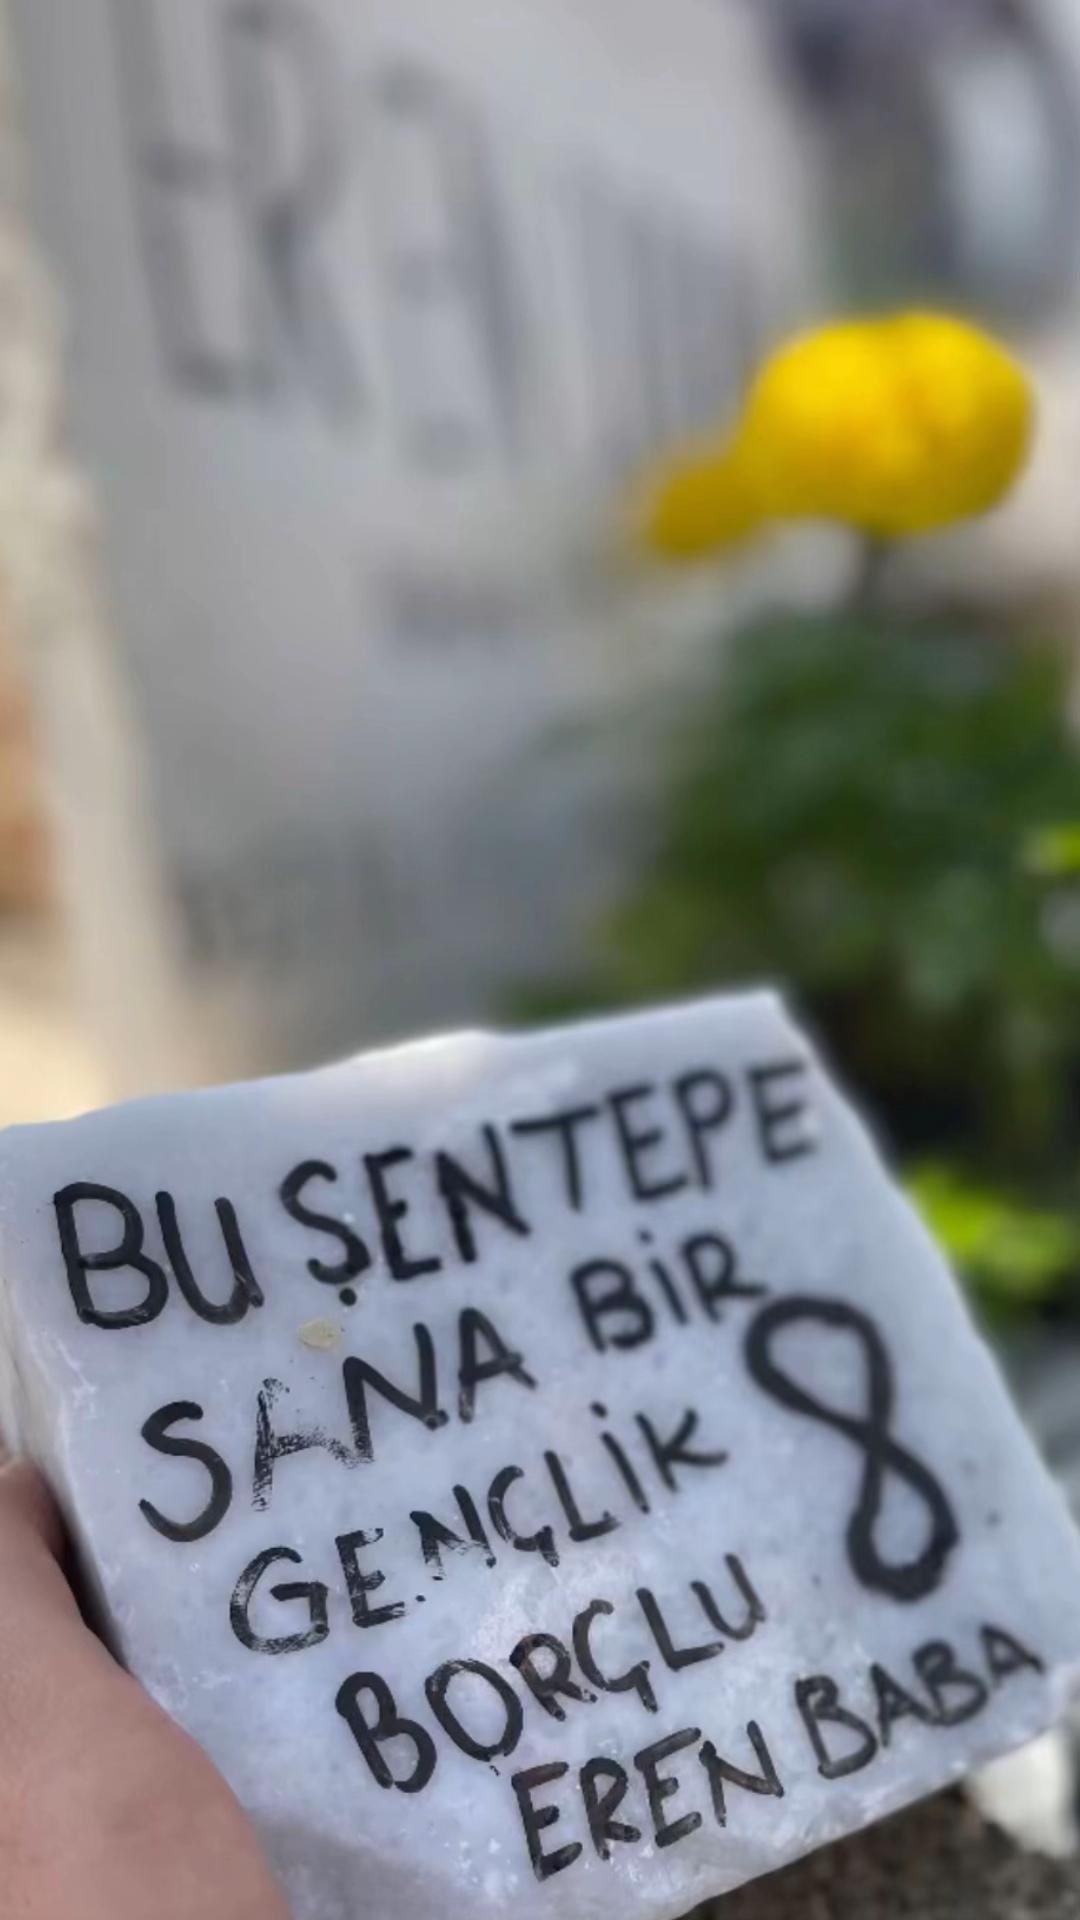 BU ŞENTEPE
SANA BİR
GENÇLİK
BORÇLU
EREN BABA